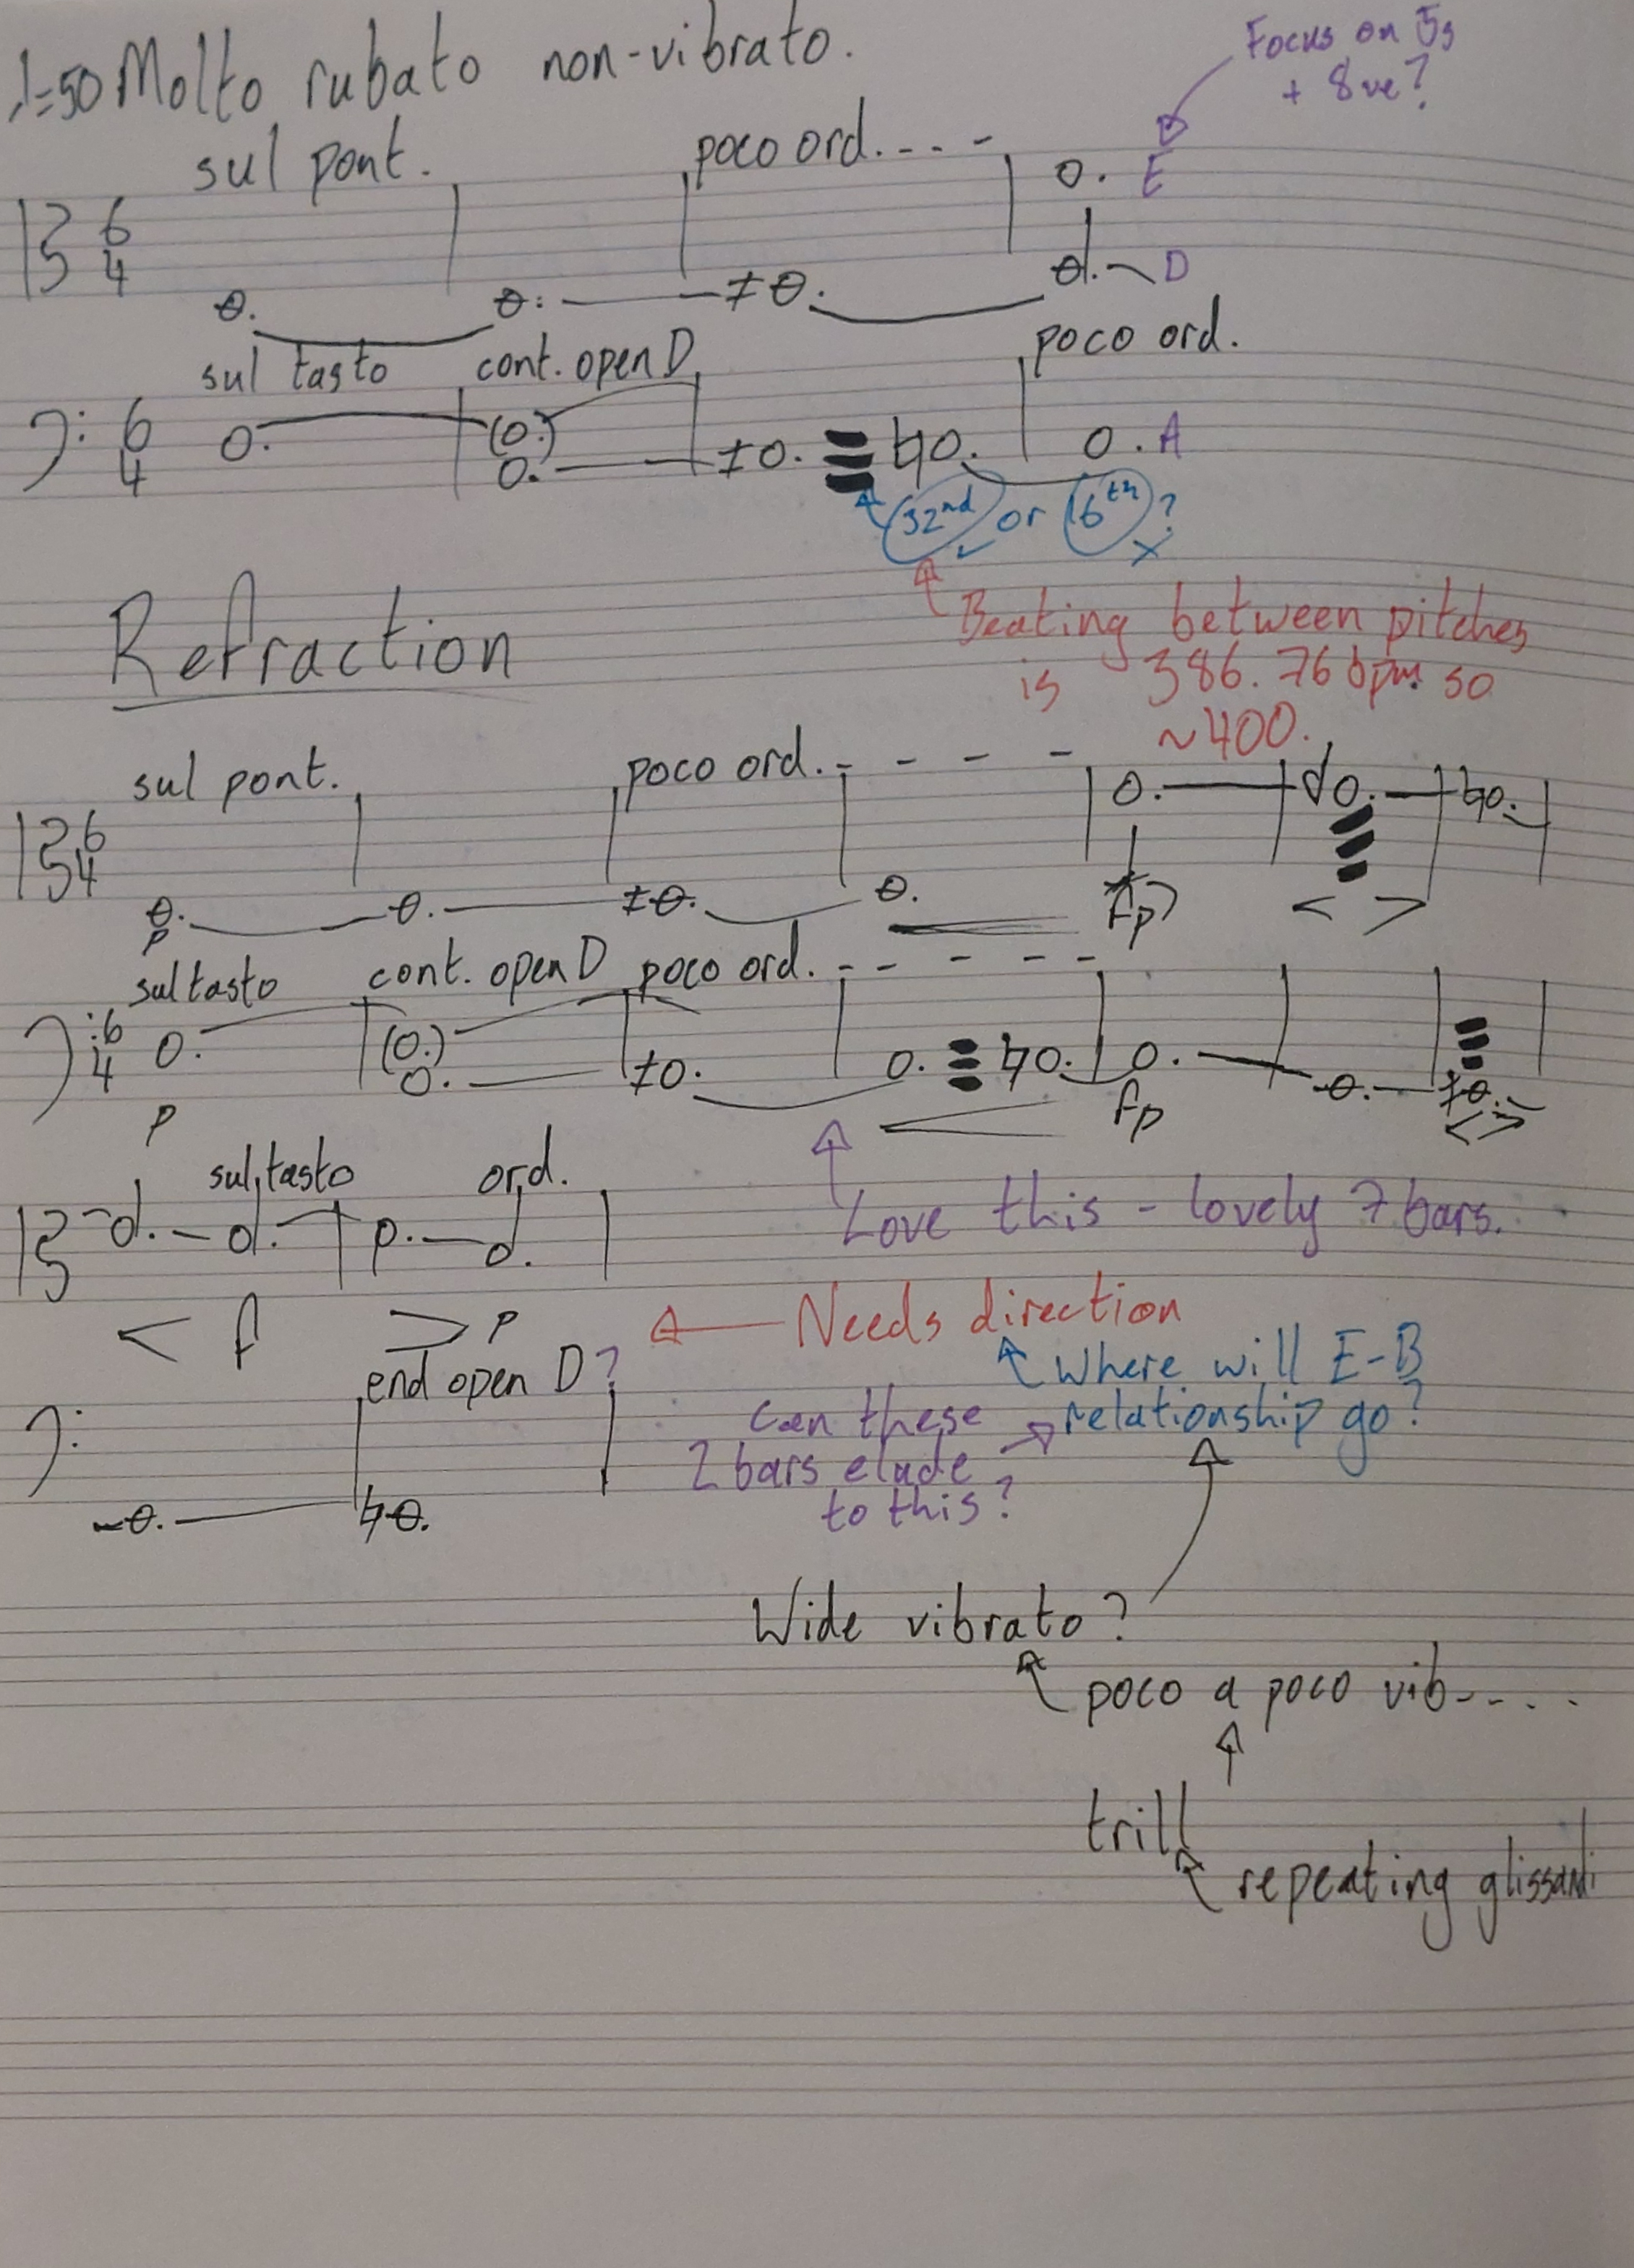 ♩=50 Molto rubato non-vibrato.
Focus on 5s
+ 8ve?
sul pont.
poco ord....-
E
6
4
D
sul tasto
cont. open D
poco ord.
6
4
A
32nd or 16th?
Beating between pitches
is 386.76 bpm so
~400.
Refraction
sul pont.
poco ord.- - - -
6
4
p
fp
sul tasto
cont. open D
poco ord.- - - - -
6
4
p
fp
Love this - lovely 7 bars.
sul tasto
ord.
f
p
Needs direction
end open D?
Where will E-B
relationship go?
Can these
2 bars elude
to this?
Wide vibrato?
poco a poco vib-....
trill
repeating glissandi